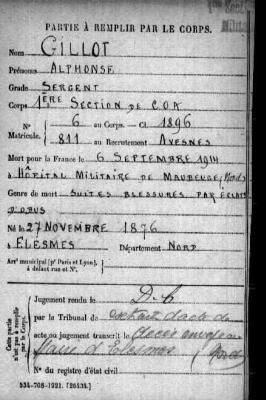 PARTIE À REMPLIR PAR LE CORPS.
Nom GILLOT
Prénoms ALPHONSE
Grade SERGENT
Corps 1ÈRE SECTION DE C.O.A
N° 6 au Corps. — Cl 1896
Matricule. 811 au Recrutement AVESNES
Mort pour la France le 6 SEPTEMBRE 1914
à HÔPITAL MILITAIRE DE MAUBEUGE (Nord)
Genre de mort SUITES BLESSURES PAR ÉCLATS
D'OBUS
Né le 27 NOVEMBRE 1876
à ELESMES Département NORD
Arrt municipal (pr Paris et Lyon), à défaut rue et N°.
Cette partie n'est pas à remplir par le Corps.
Jugement rendu le
par le Tribunal de extrait d'acte de
acte ou jugement transcrit le décès envoyé au
Maire d'Elesmes (Nord)
N° du registre d'état civil
534-708-1921. [26434.]